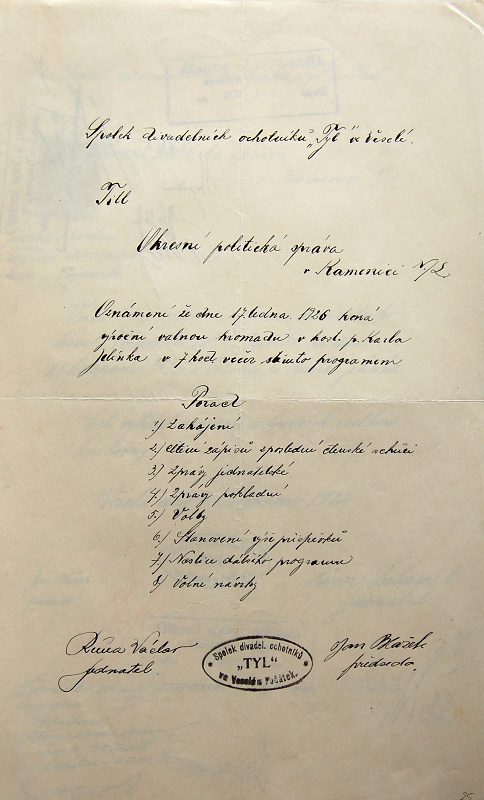 Spolek divadelních ochotníků „Tyl" ve Veselé.
Titl
Okresní politická správa
v Kamenici N/L
Oznámení že dne 17 ledna 1926 koná
výroční valnou hromadu v host. p. Karla
Jelínka v 7 hod. večer s tímto programem
Pořad
1.) Zahájení
2.) Čtení zápisů z poslední členské schůzi
3.) Zprávy jednatelské
4.) Zprávy pokladní
5.) Volby
6.) Stanovení výše příspěvků
7.) Nástice dalšího programu
8.) Volné návrhy
Růža Václav
jednatel.
Spolek divadel. ochotníků
„TYL"
ve Veselé u Počátek.
Jan Blažek
předseda.
25